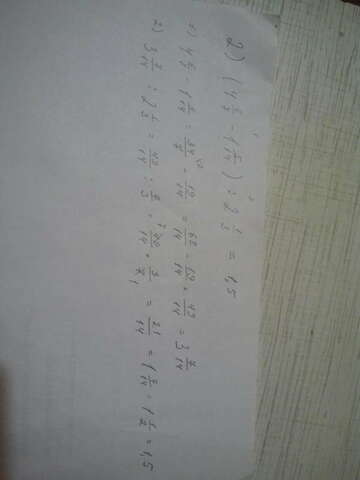 2) (4 6/7 - 1 5/14) : 2 1/3 = 1,5
1) 4 6/7 - 1 5/14 = 34/7 - 19/14 = 68/14 - 19/14 = 49/14 = 3 7/14
2) 3 7/14 : 2 1/3 = 49/14 : 7/3 = 49/14 * 3/7 = 21/14 = 1 7/14 = 1 1/2 = 1,5